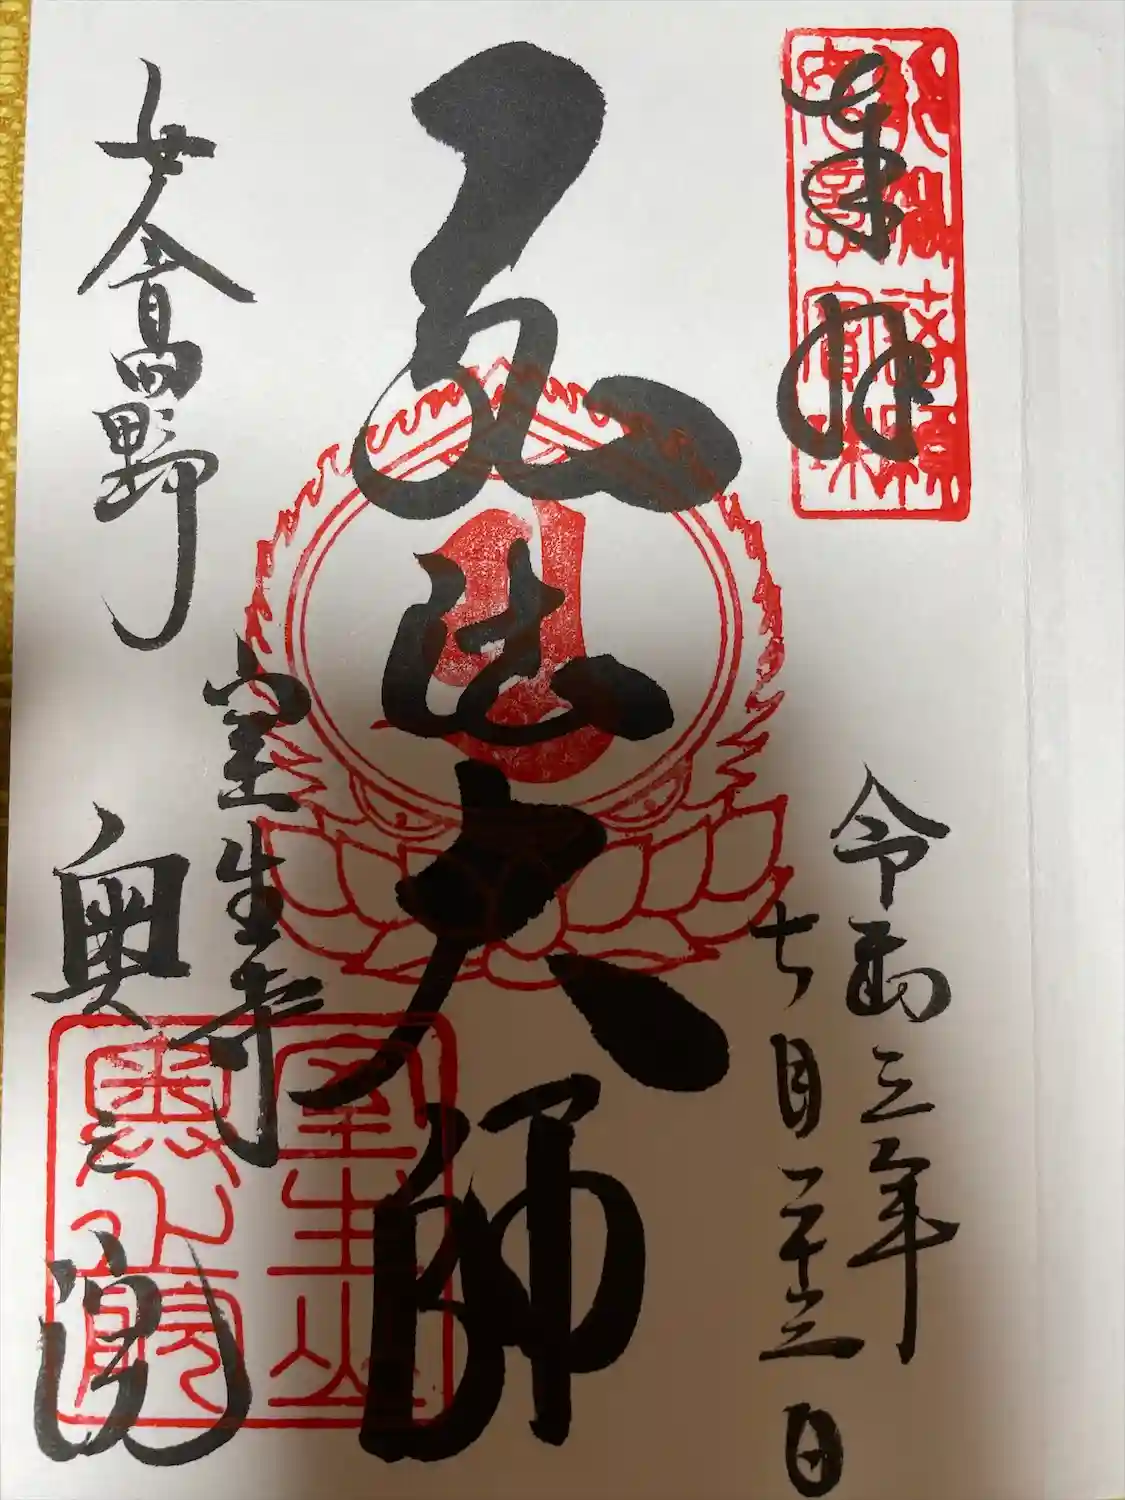 奉拝
如意寶珠
令和三年
七月二十三日
弘法大師
女人高野
室生寺
奥之院
室生山
奥之院